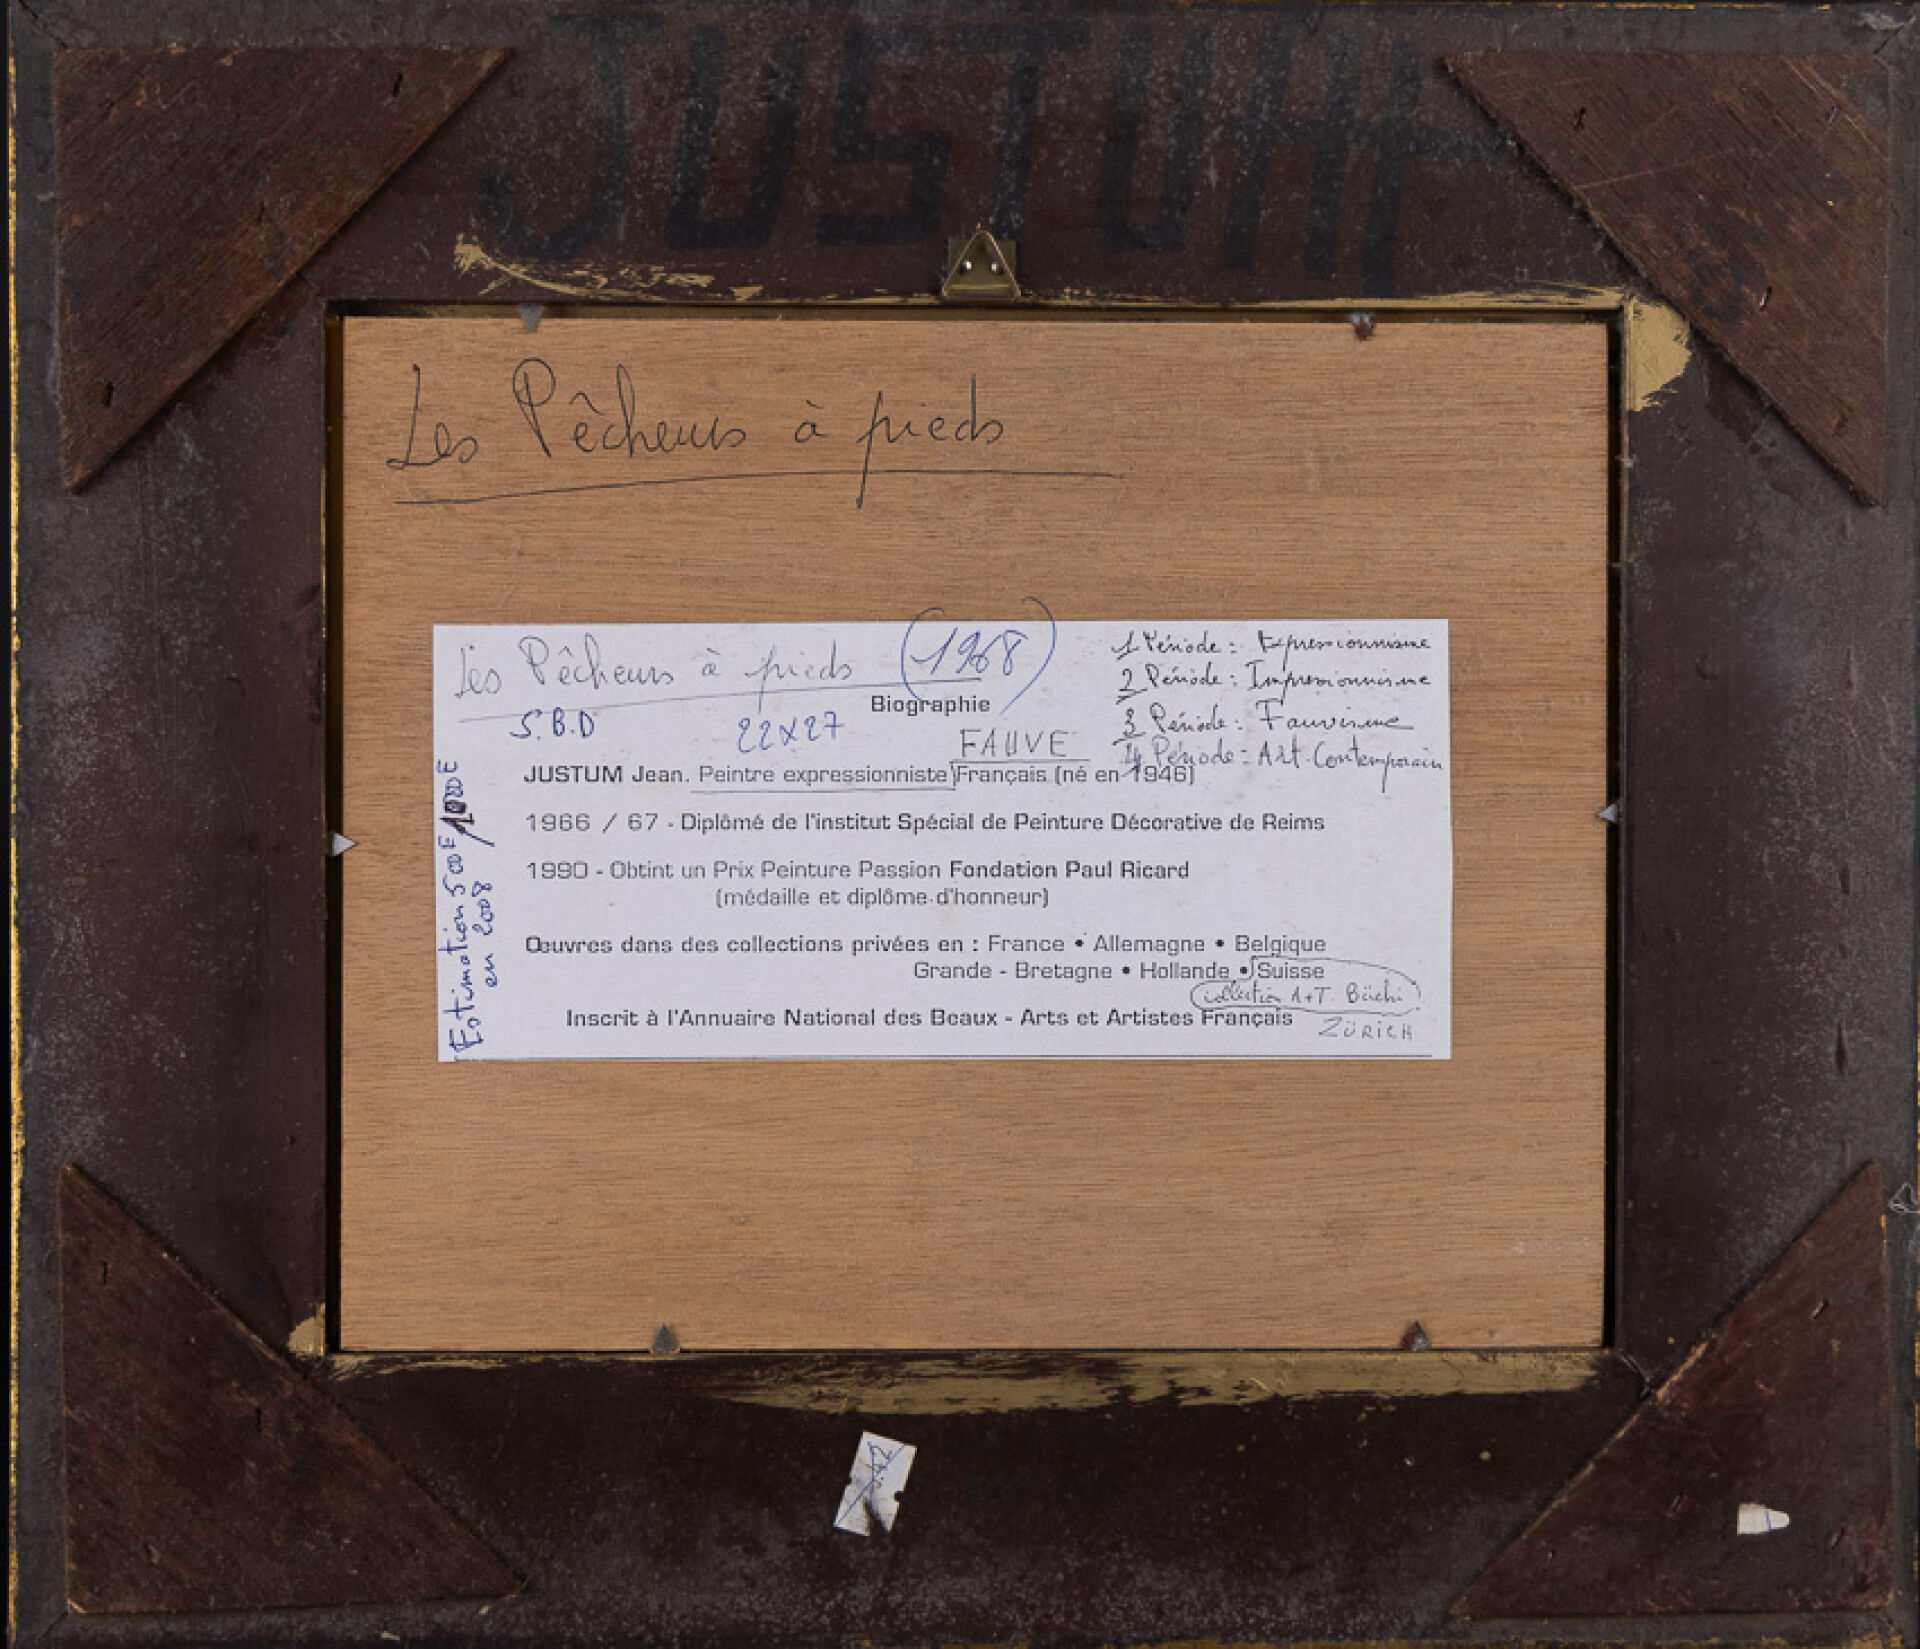 JUSTUM
Les Pêcheurs à pieds
Les Pêcheurs à pieds (1968)
1 Période : Expressionnisme
2 Période : Impressionnisme
3 Période : Fauvisme
4 Période = Art Contemporain
Biographie
S.B.D 22x27
FAUVE
JUSTUM Jean. Peintre expressionniste Français (né en 1946)
1966 / 67 - Diplômé de l'institut Spécial de Peinture Décorative de Reims
1990 - Obtint un Prix Peinture Passion Fondation Paul Ricard
(médaille et diplôme d'honneur)
Œuvres dans des collections privées en : France • Allemagne • Belgique
Grande - Bretagne • Hollande • Suisse
collection A+T. Büchi
ZÜRICH
Inscrit à l'Annuaire National des Beaux - Arts et Artistes Français
Estimation 500E/1000E
en 2008